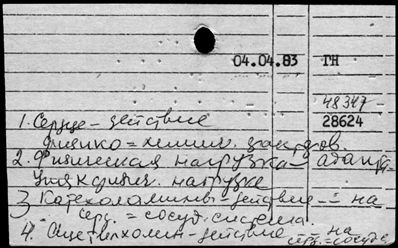 04.04.83 ГН
48347
28624
1. Сердце – действие
физико=химич. факторов
2. Физическая нагрузка – адап-
ция к физич. нагрузке
3) Катехоламины – действие – на
серд.=сосуд. система
4. Ацетилхолин – действие – на
серд.=сосуд